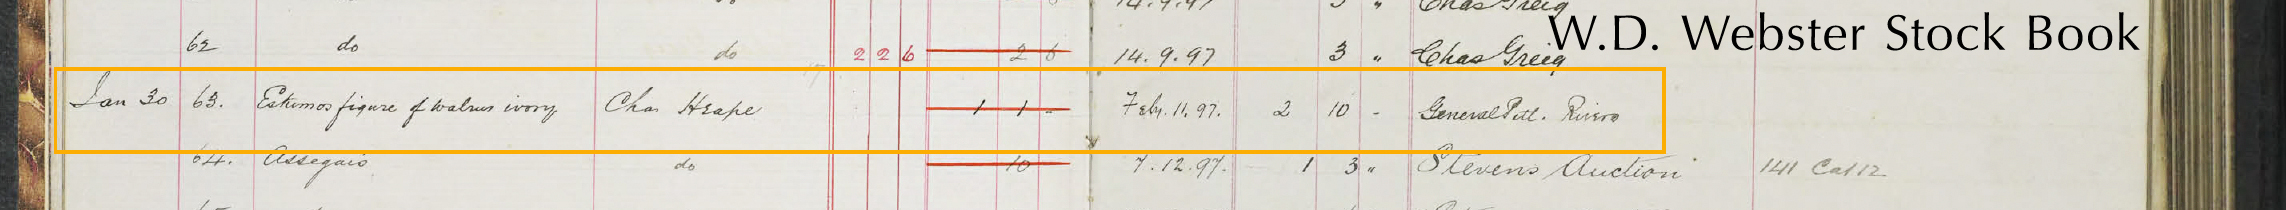 14.9.97 3 " Chas Greig
W.D. Webster Stock Book
62 do do 2 2 6 2 6 14.9.97 3 " Chas Greig
Jan 30 63. Eskimos figure of walrus ivory Chas Heape 1 1 - Feby. 11. 97. 2 10 - General Pitt. Rivers
64. Assegais do 10 7.12.97. 1 3 " Stevens Auction 141 Cat 12